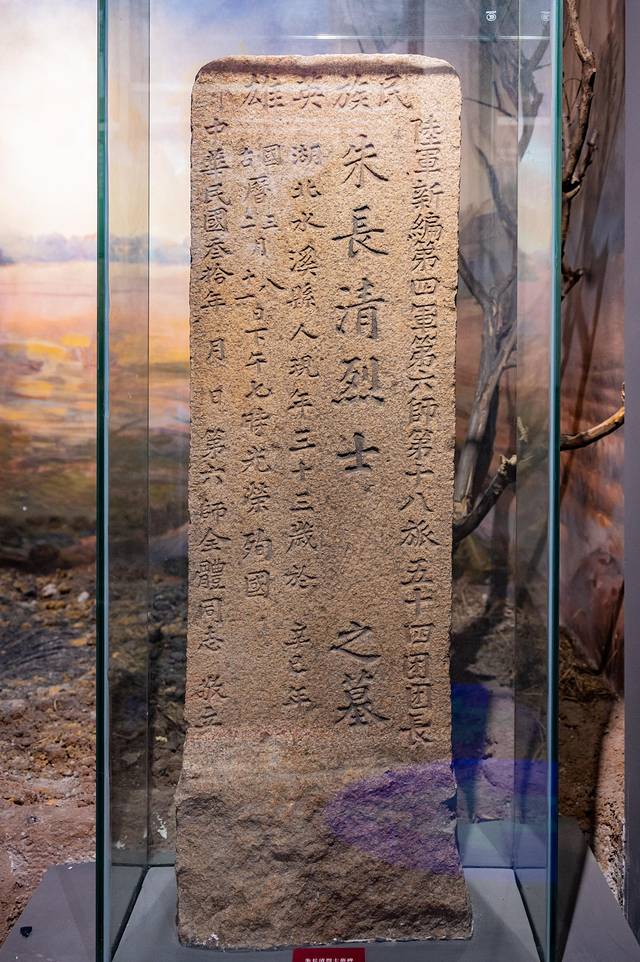 民族英雄
陸軍新編第四軍第六師第十八旅五十四团团長
朱長清烈士之墓
湖北水溪縣人現年三十三歲於 辛巳年
國古曆三二月八十一日下午七時光榮殉國
中華民國叁拾年 月 日 第六師全體同志 敬立